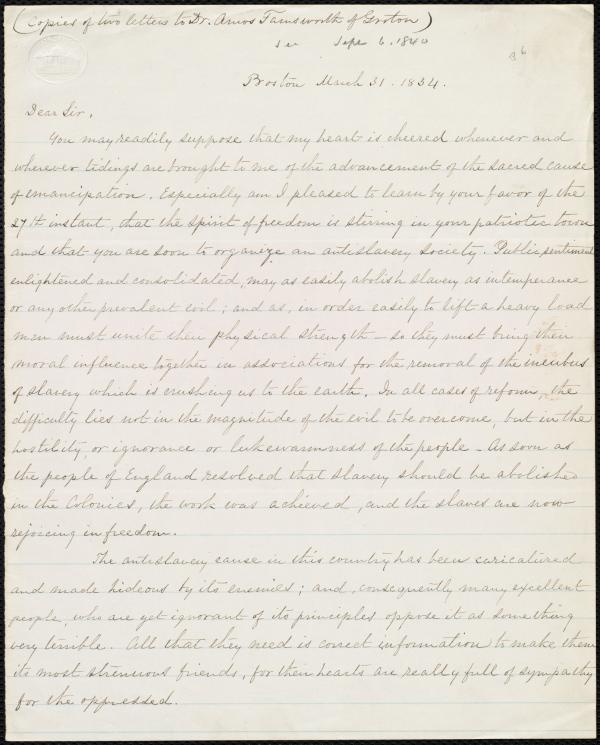 (Copies of two letters to Dr. Amos Farnsworth of Groton)
see Sept 6. 1840
Boston March 31. 1834.
Dear Sir,
You may readily suppose that my heart is cheered whenever and
wherever tidings are brought to me of the advancement of the sacred cause
of emancipation. Especially am I pleased to learn by your favor of the
27th instant, that the spirit of freedom is stirring in your patriotic town
and that you are soon to organize an antislavery society. Public sentiment
enlightened and consolidated, may as easily abolish slavery as intemperance
or any other prevalent evil; and as, in order easily to lift a heavy load
men must unite their physical strength – so they must bring their
moral influence together in associations for the removal of the incubus
of slavery which is crushing us to the earth. In all cases of reform, the
difficulty lies not in the magnitude of the evil to be overcome, but in the
hostility or ignorance or lukewarmness of the people – As soon as
the people of England resolved that slavery should be abolished
in the Colonies, the work was achieved, and the slaves are now
rejoicing in freedom.
The antislavery cause in this country has been caricatured
and made hideous by its enemies; and, consequently many excellent
people, who are yet ignorant of its principles oppose it as something
very terrible. All that they need is correct information to make them
its most strenuous friends, for their hearts are really full of sympathy
for the oppressed.